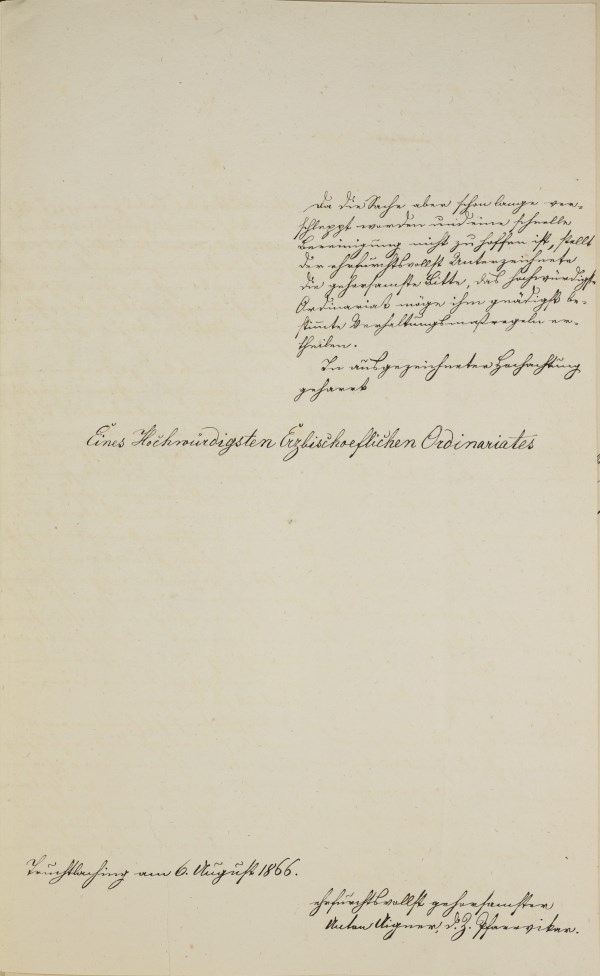 Da die Sache aber schon lange ver-
schleppt worden und eine schnelle
Bereinigung nicht zu hoffen ist, stellt
der ehrfurchtsvollst Unterzeichnete
die gehorsamste Bitte, das Hochwürdigste
Ordinariat möge ihm gnädigst be-
stimmte Verhaltungsmaßregeln er-
theilen.
In ausgezeichneter Hochachtung
geharrt
Eines Hochwürdigsten Erzbischoeflichen Ordinariates
Truchtlaching am 6. August 1866.
ehrfurchtsvollst gehorsamster
Anton Aigner, d. Z. Pfarrvikar.